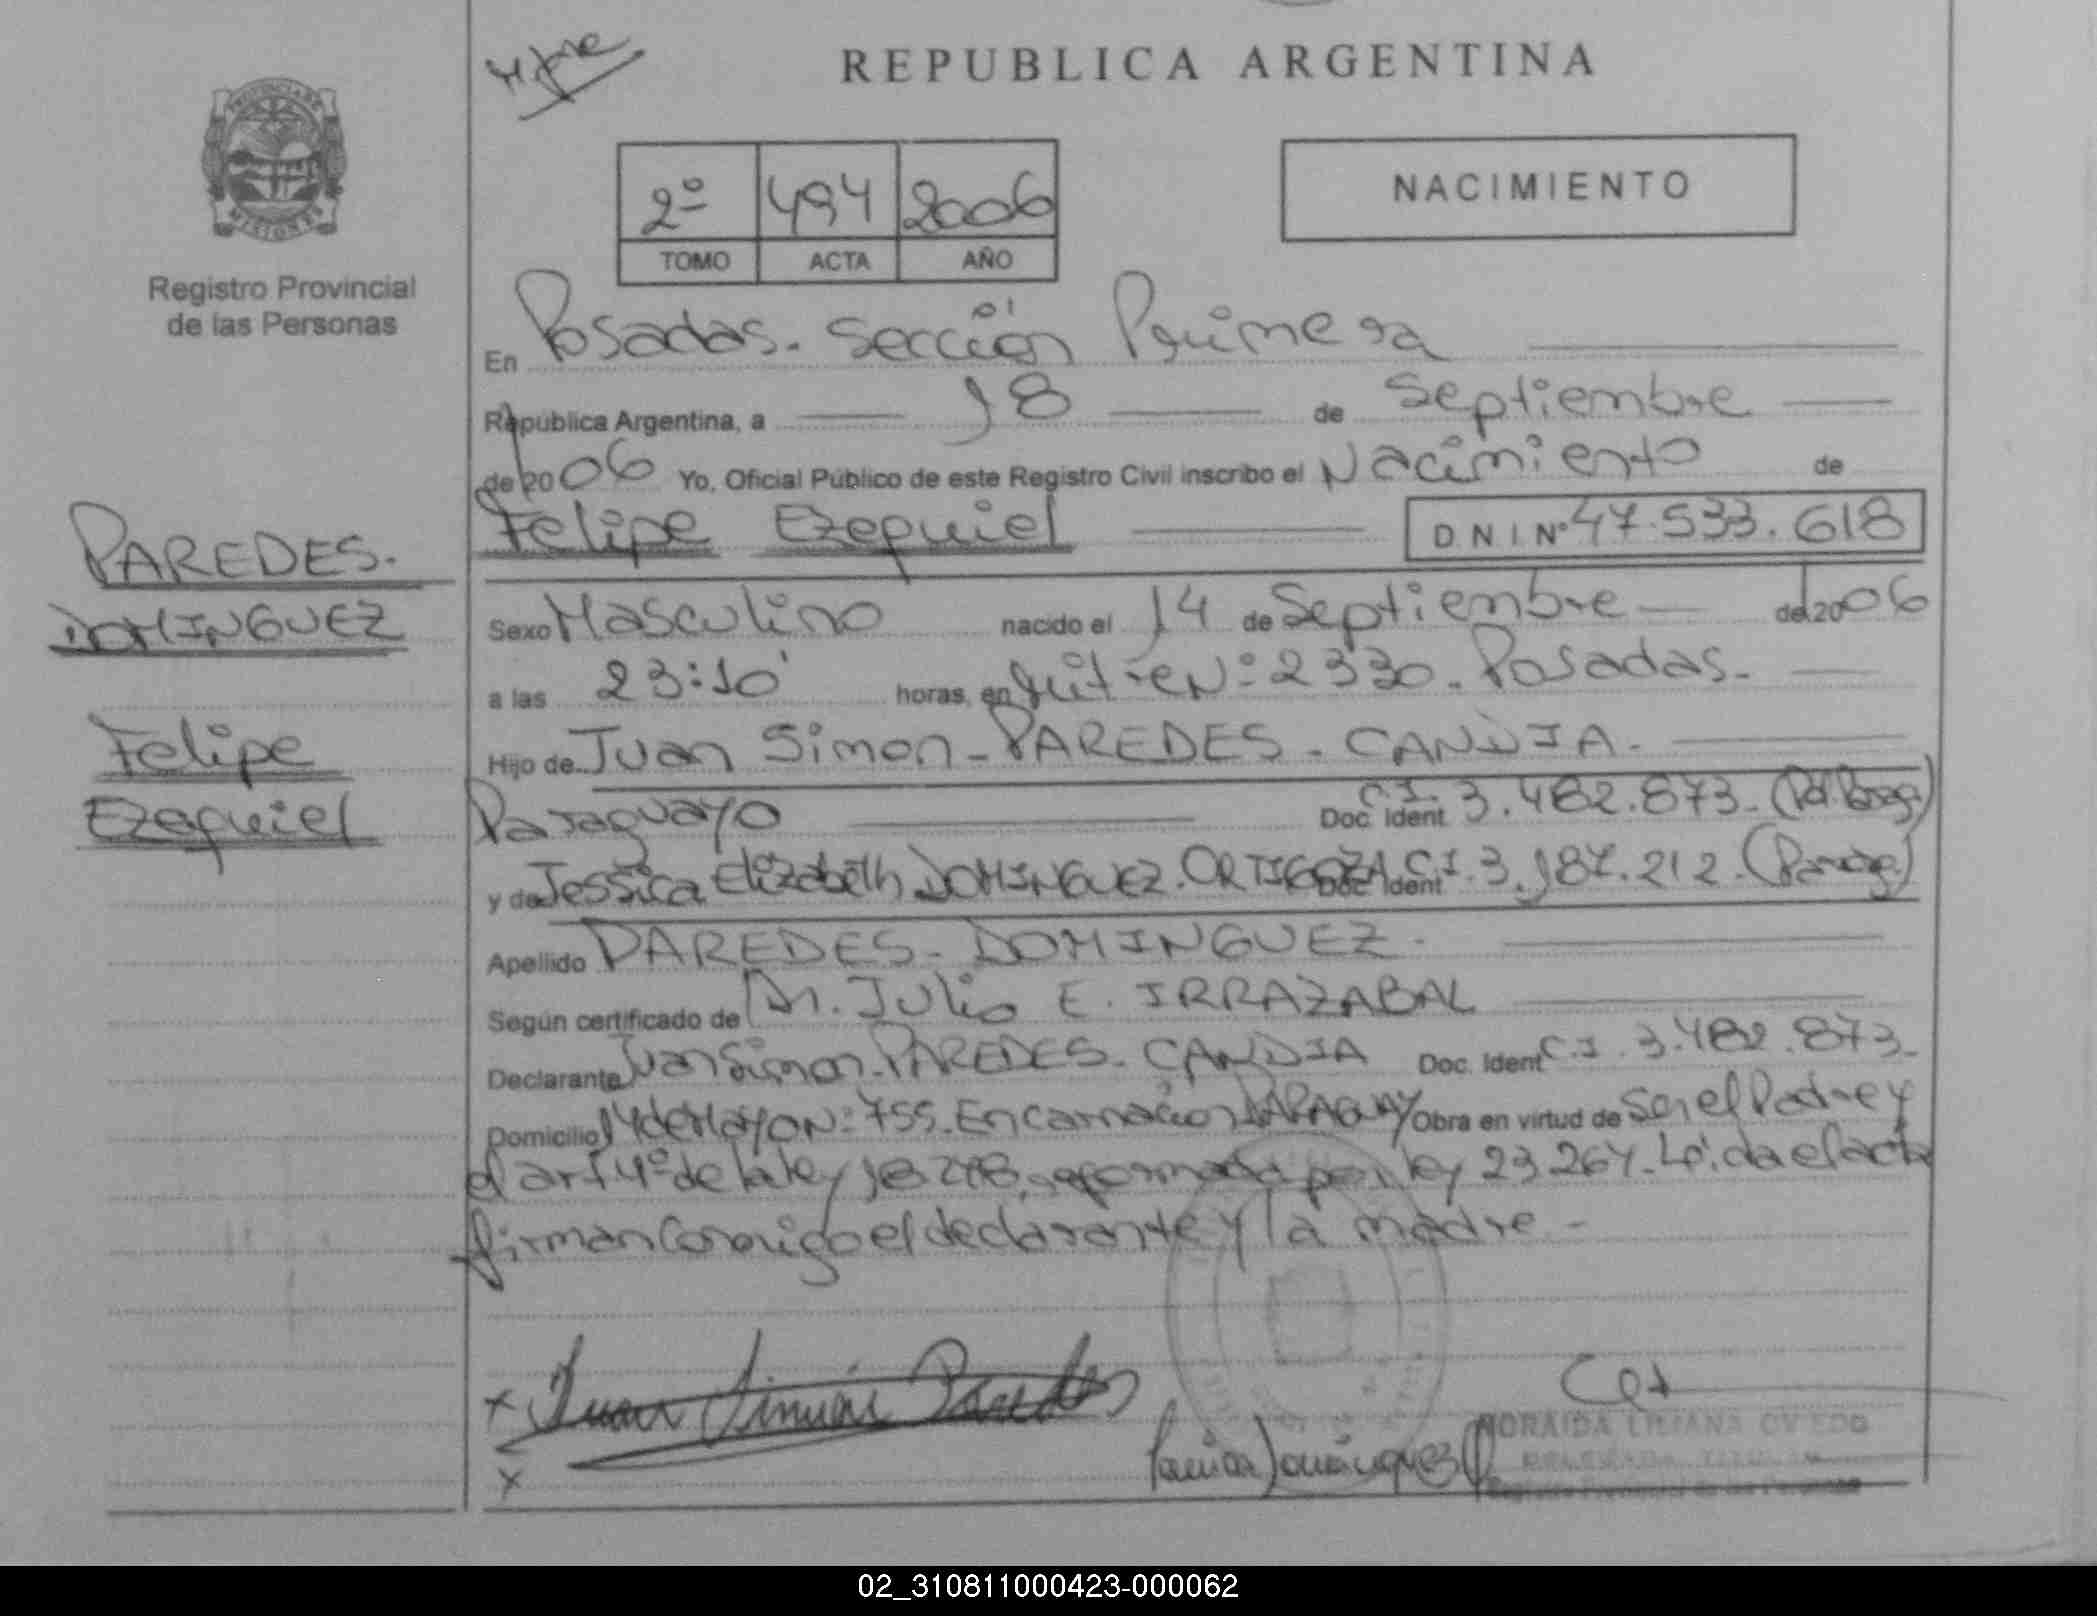 REPUBLICA ARGENTINA
PROVINCIA DE
MISIONES
Registro Provincial
de las Personas
2º 494 2006
TOMO ACTA AÑO
NACIMIENTO
En Posadas. Sección 01 Primera
República Argentina, a 18 de Septiembre
de 2006 Yo, Oficial Público de este Registro Civil inscribo el Nacimiento de
Felipe Ezequiel D.N.I.Nº 47.533.618
PAREDES.
DOMINGUEZ
Felipe
Ezequiel
Sexo Masculino nacido el 14 de Septiembre de 2006
a las 23:10' horas, en Nº: 2330. Posadas.
Hijo de Juan Simon - PAREDES - CANDIA.
Paraguayo Doc. Ident. C.I. 3.482.873.
y de Jessica Elizabeth DOMINGUEZ. ORTIGOZA Doc. Ident. C.I. 3.187.212.
Apellido PAREDES - DOMINGUEZ.
Según certificado de Dr. Julio E. IRRAZABAL
Declarante Juan Simon - PAREDES - CANDIA Doc. Ident. C.I. 3.482.873.
Domicilio 14 de Mayo Nº: 755. Encarnación PARAGUAY Obra en virtud de Ser el Padre y
el art 4º de la ley 18.248, reformada por ley 23.264. Leída el acta
firman Conmigo el declarante y la madre -
x Juan Simón Paredes
x
NORAIDA LILIANA OVIEDO
02_310811000423-000062